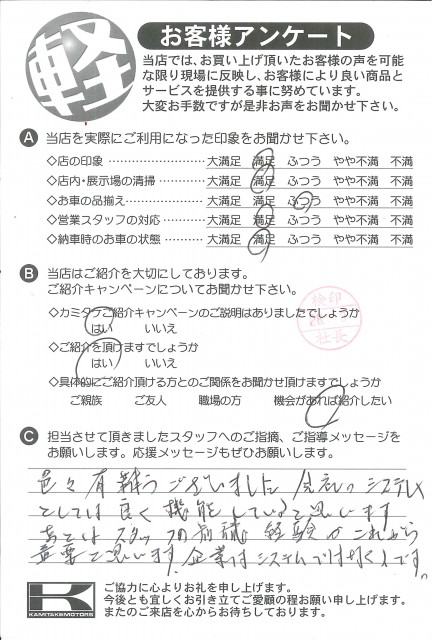 軽
お客様アンケート
当店では、お買い上げ頂いたお客様の声を可能
な限り現場に反映し、お客様により良い商品と
サービスを提供する事に努めています。
大変お手数ですが是非お声をお聞かせ下さい。
A 当店を実際にご利用になった印象をお聞かせ下さい。
◇店の印象 ………………… 大満足 満足 ふつう やや不満 不満
◇店内・展示場の清掃 ………… 大満足 満足 ふつう やや不満 不満
◇お車の品揃え ……………… 大満足 満足 ふつう やや不満 不満
◇営業スタッフの対応 ………… 大満足 満足 ふつう やや不満 不満
◇納車時のお車の状態 ………… 大満足 満足 ふつう やや不満 不満
B 当店はご紹介を大切にしております。
ご紹介キャンペーンについてお聞かせ下さい。
◇カミタケご紹介キャンペーンのご説明はありましたでしょうか
はい いいえ
検印
社長
◇ご紹介を頂けますでしょうか
はい いいえ
◇具体的にご紹介頂ける方とのご関係をお聞かせ頂けますでしょうか
ご親族 ご友人 職場の方 機会があれば紹介したい
C 担当させて頂きましたスタッフへのご指摘、ご指導メッセージを
お願いします。応援メッセージもぜひお願いします。
色々有難うございました 会社のシステム
としては良く機能していると思います
あとはスタッフの 経験がこれから
重要と思います。企業はシステムでは 人です。
KAMITAKEMOTORS
ご協力に心よりお礼を申し上げます。
今後とも宜しくお引き立てご愛顧の程お願い申し上げます。
またのご来店を心からお待ちしております。